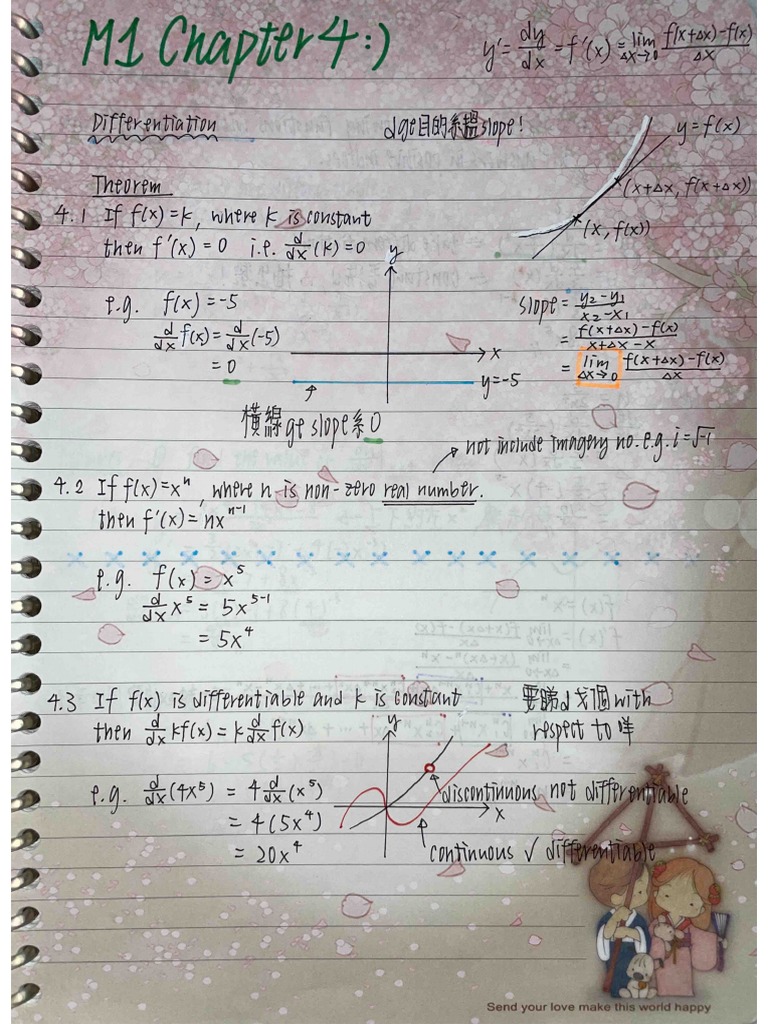 M1 Chapter 4 :)
y' = dy/dx = f'(x) = lim Δx→0 f(x+Δx)-f(x)/Δx
Differentiation
d ge目的系搵slope!
y=f(x)
(x+Δx, f(x+Δx))
(x, f(x))
Theorem
4.1 If f(x)=k, where k is constant
then f'(x)=0 i.e. d/dx(k)=0
y
x
y=-5
e.g. f(x)=-5
d/dx f(x)=d/dx(-5)
=0
slope = y2-y1/x2-x1
= f(x+Δx)-f(x)/x+Δx-x
= lim Δx→0 f(x+Δx)-f(x)/Δx
橫線ge slope系0
not include imagery no. e.g. i=√-1
4.2 If f(x)=xⁿ, where n is non-zero real number.
then f'(x)=nxⁿ⁻¹
e.g. f(x)=x⁵
d/dx x⁵ = 5x⁵⁻¹
= 5x⁴
4.3 If f(x) is differentiable and k is constant
then d/dx kf(x)=k d/dx f(x)
要睇d戈個with
respect to咩
y
x
e.g. d/dx(4x⁵) = 4 d/dx(x⁵)
= 4(5x⁴)
= 20x⁴
discontinuous not differentiable
continuous √ differentiable
Send your love make this world happy